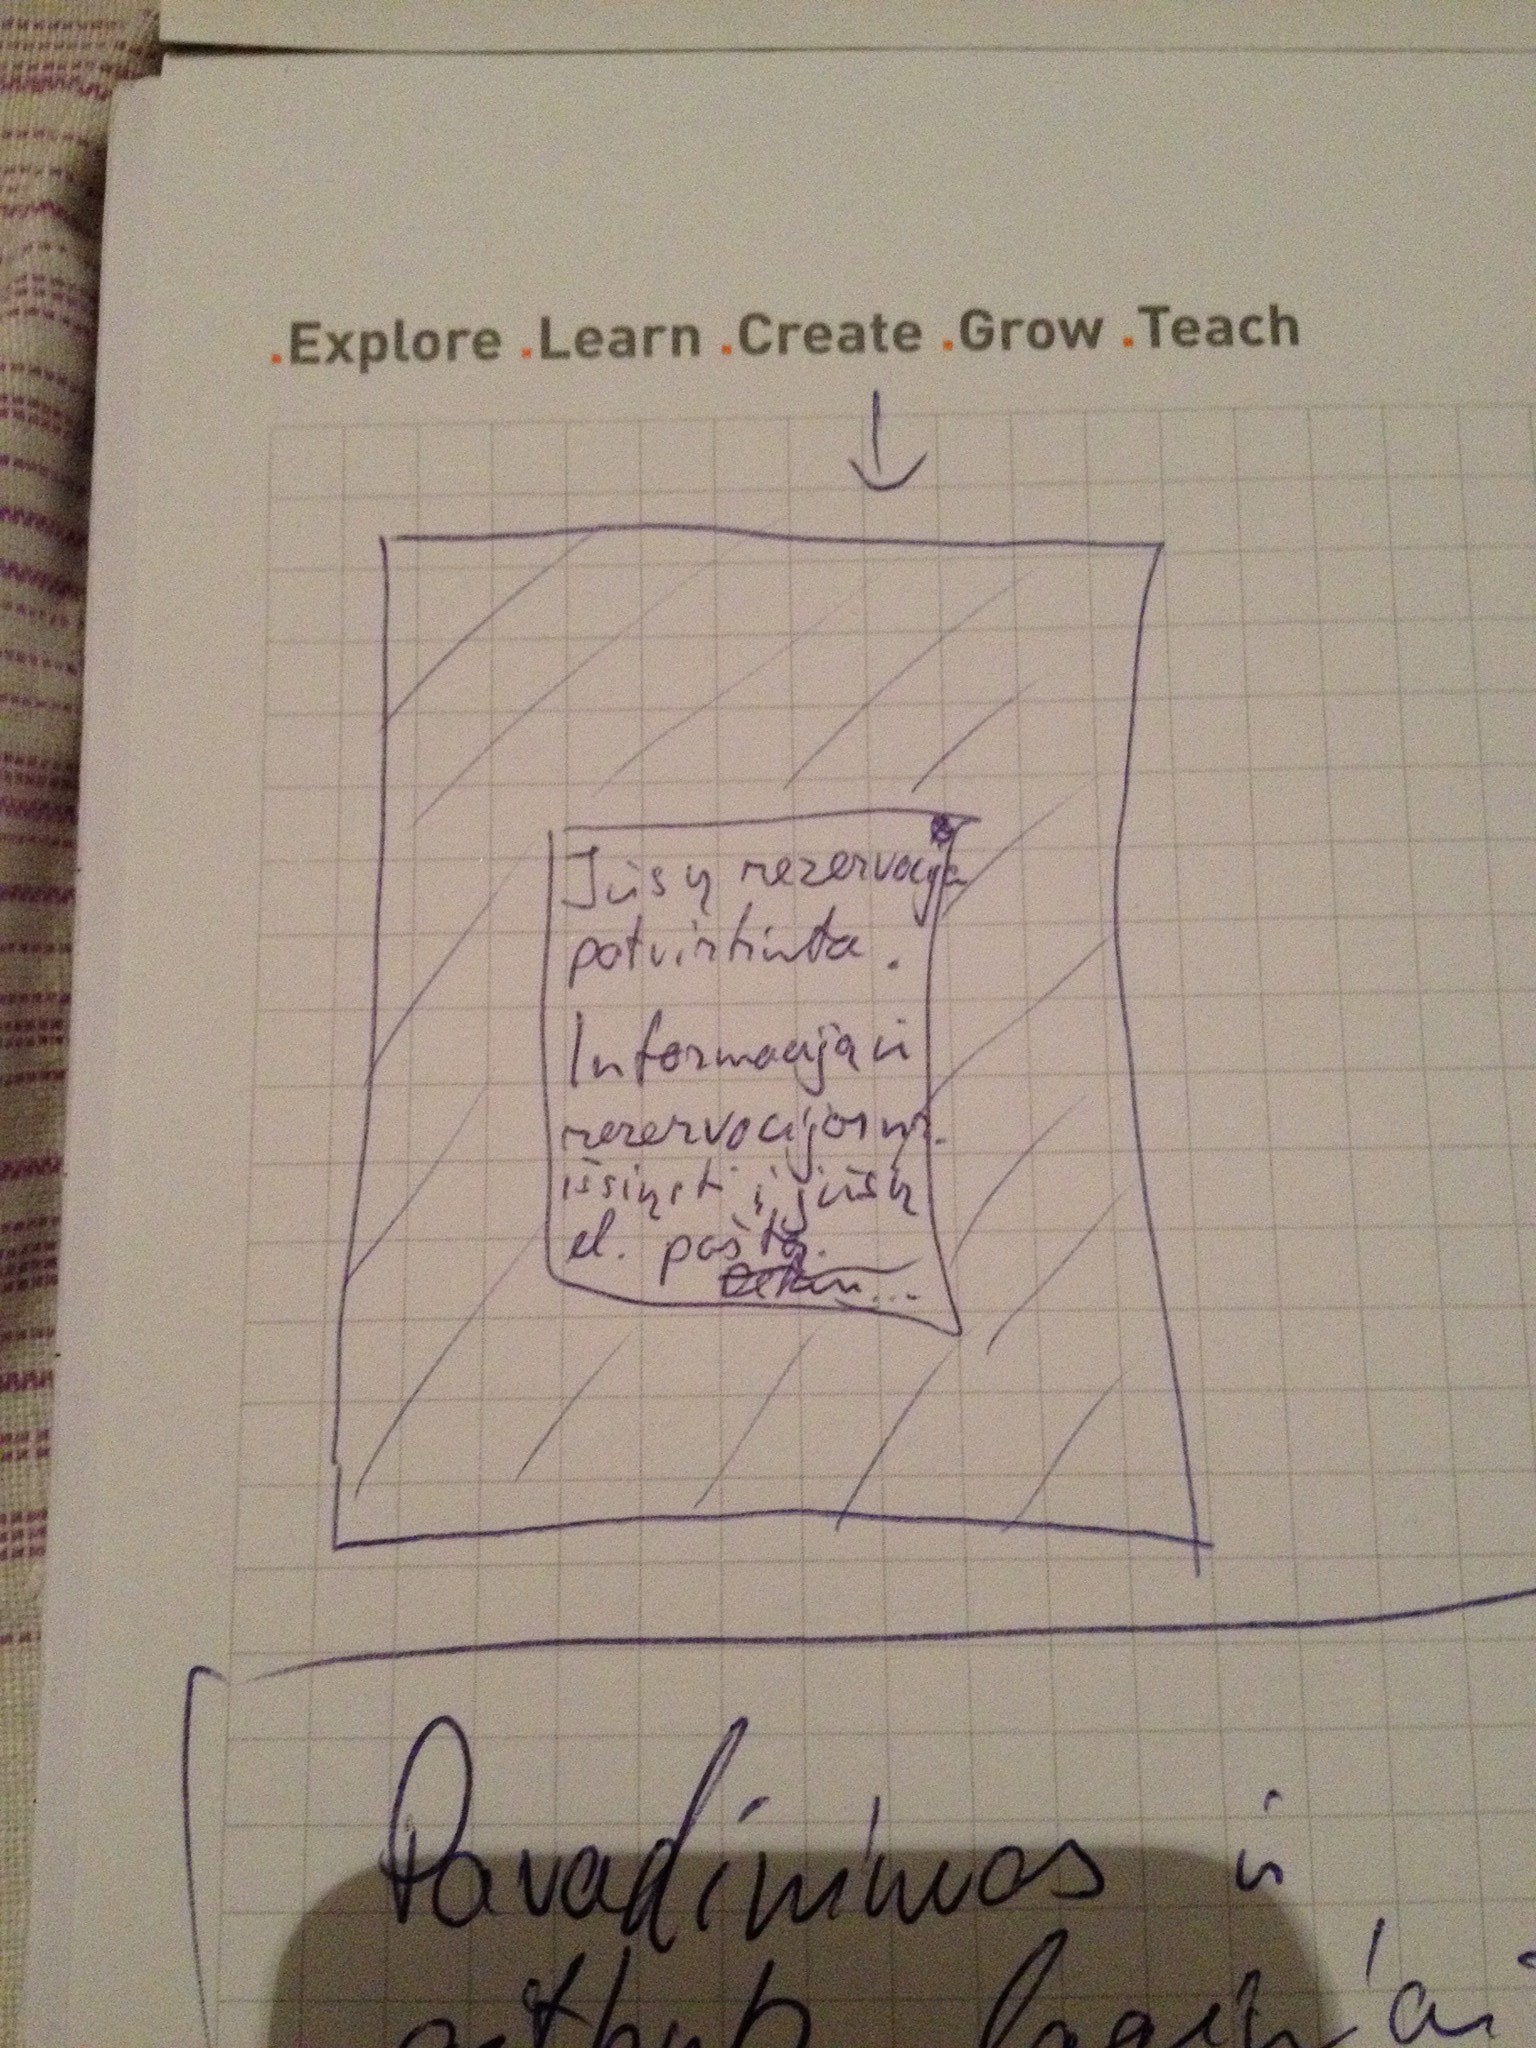 .Explore .Learn .Create .Grow .Teach
Jūsų rezervacija
patvirtinta.
Informacija ir
rezervacijos nr.
išsiųsti į jūsų
el. paštą.
Pavadinimas ir
github log